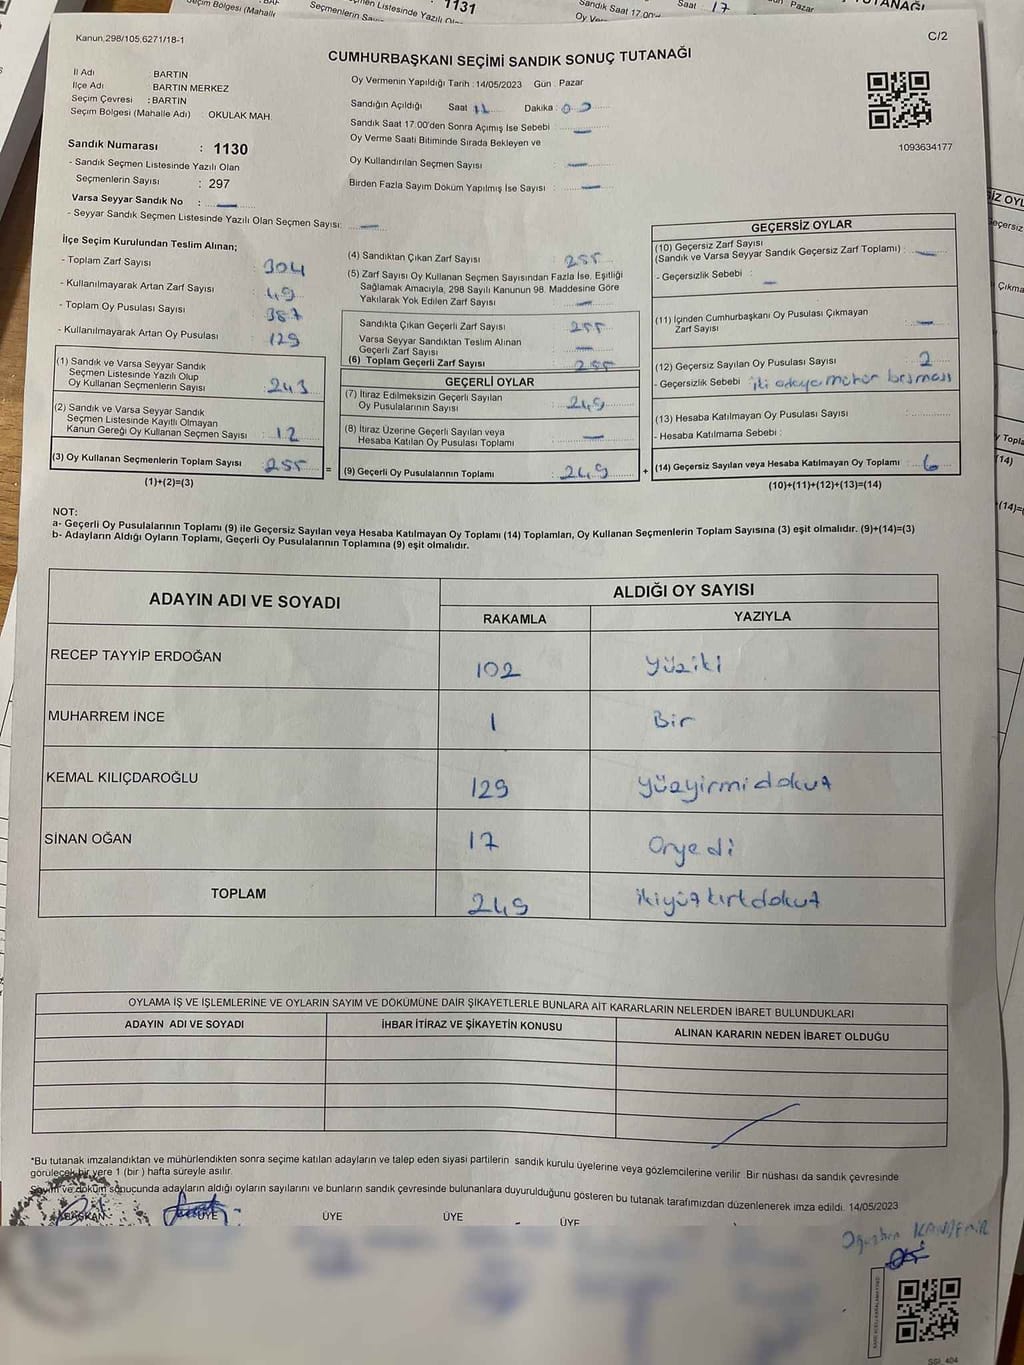 Kanun.298/105,6271/18-1
C/2
CUMHURBAŞKANI SEÇİMİ SANDIK SONUÇ TUTANAĞI
İl Adı BARTIN
İlçe Adı BARTIN MERKEZ
Seçim Çevresi : BARTIN
Seçim Bölgesi (Mahalle Adı) OKULAK MAH.
Sandık Numarası : 1130
- Sandık Seçmen Listesinde Yazılı Olan
Seçmenlerin Sayısı : 297
Varsa Seyyar Sandık No : —
- Seyyar Sandık Seçmen Listesinde Yazılı Olan Seçmen Sayısı: —
Oy Vermenin Yapıldığı Tarih : 14/05/2023 Gün : Pazar
Sandığın Açıldığı Saat Dakika :
Sandık Saat 17:00'den Sonra Açımış İse Sebebi —
Oy Verme Saati Bitiminde Sırada Bekleyen ve
Oy Kullandırılan Seçmen Sayısı : —
Birden Fazla Sayım Döküm Yapılmış İse Sayısı : —
1093634177
İlçe Seçim Kurulundan Teslim Alınan;
- Toplam Zarf Sayısı : 304
- Kullanılmayarak Artan Zarf Sayısı : 49
- Toplam Oy Pusulası Sayısı : 387
- Kullanılmayarak Artan Oy Pusulası : 129
(1) Sandık ve Varsa Seyyar Sandık
Seçmen Listesinde Yazılı Olup
Oy Kullanan Seçmenlerin Sayısı : 243
(2) Sandık ve Varsa Seyyar Sandık
Seçmen Listesinde Kayıtlı Olmayan
Kanun Gereği Oy Kullanan Seçmen Sayısı : 12
(3) Oy Kullanan Seçmenlerin Toplam Sayısı : 255
(1)+(2)=(3)
(4) Sandıktan Çıkan Zarf Sayısı : 255
(5) Zarf Sayısı Oy Kullanan Seçmen Sayısından Fazla İse, Eşitliği
Sağlamak Amacıyla, 298 Sayılı Kanunun 98. Maddesine Göre
Yakılarak Yok Edilen Zarf Sayısı : —
Sandıkta Çıkan Geçerli Zarf Sayısı : 255
Varsa Seyyar Sandıktan Teslim Alınan
Geçerli Zarf Sayısı : —
(6) Toplam Geçerli Zarf Sayısı : 255
GEÇERLİ OYLAR
(7) İtiraz Edilmeksizin Geçerli Sayılan
Oy Pusulalarının Sayısı : 249
(8) İtiraz Üzerine Geçerli Sayılan veya
Hesaba Katılan Oy Pusulası Toplamı : —
= (9) Geçerli Oy Pusulalarının Toplamı : 249
GEÇERSİZ OYLAR
(10) Geçersiz Zarf Sayısı
(Sandık ve Varsa Seyyar Sandık Geçersiz Zarf Toplamı) : —
- Geçersizlik Sebebi : —
(11) İçinden Cumhurbaşkanı Oy Pusulası Çıkmayan
Zarf Sayısı : —
(12) Geçersiz Sayılan Oy Pusulası Sayısı : 2
- Geçersizlik Sebebi : iki adaya mühür basması
(13) Hesaba Katılmayan Oy Pusulası Sayısı :
- Hesaba Katılmama Sebebi :
+ (14) Geçersiz Sayılan veya Hesaba Katılmayan Oy Toplamı : 6
(10)+(11)+(12)+(13)=(14)
NOT:
a- Geçerli Oy Pusulalarının Toplamı (9) ile Geçersiz Sayılan veya Hesaba Katılmayan Oy Toplamı (14) Toplamları, Oy Kullanan Seçmenlerin Toplam Sayısına (3) eşit olmalıdır. (9)+(14)=(3)
b- Adayların Aldığı Oyların Toplamı, Geçerli Oy Pusulalarının Toplamına (9) eşit olmalıdır.
ADAYIN ADI VE SOYADI ALDIĞI OY SAYISI
RAKAMLA YAZIYLA
RECEP TAYYİP ERDOĞAN 102 Yüziki
MUHARREM İNCE 1 Bir
KEMAL KILIÇDAROĞLU 129 Yüzyirmidokuz
SİNAN OĞAN 17 Onyedi
TOPLAM 249 ikiyüzkırkdokuz
OYLAMA İŞ VE İŞLEMLERİNE VE OYLARIN SAYIM VE DÖKÜMÜNE DAİR ŞİKAYETLERLE BUNLARA AİT KARARLARIN NELERDEN İBARET BULUNDUKLARI
ADAYIN ADI VE SOYADI İHBAR İTİRAZ VE ŞİKAYETİN KONUSU ALINAN KARARIN NEDEN İBARET OLDUĞU
*Bu tutanak imzalandıktan ve mühürlendikten sonra seçime katılan adayların ve talep eden siyasi partilerin sandık kurulu üyelerine veya gözlemcilerine verilir. Bir nüshası da sandık çevresinde
görülecek bir yere 1 (bir ) hafta süreyle asılır.
Sayım ve döküm sonucunda adayların aldığı oyların sayılarını ve bunların sandık çevresinde bulunanlara duyurulduğunu gösteren bu tutanak tarafımızdan düzenlenerek imza edildi. 14/05/2023
BAŞKAN ÜYE ÜYE ÜYE ÜYE
Oğuzhan KANDEMİR